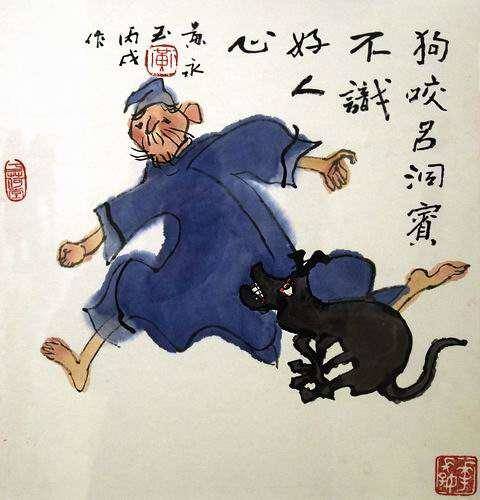 狗咬吕洞賓
不識
好人
心
黄永
玉
丙戌
作